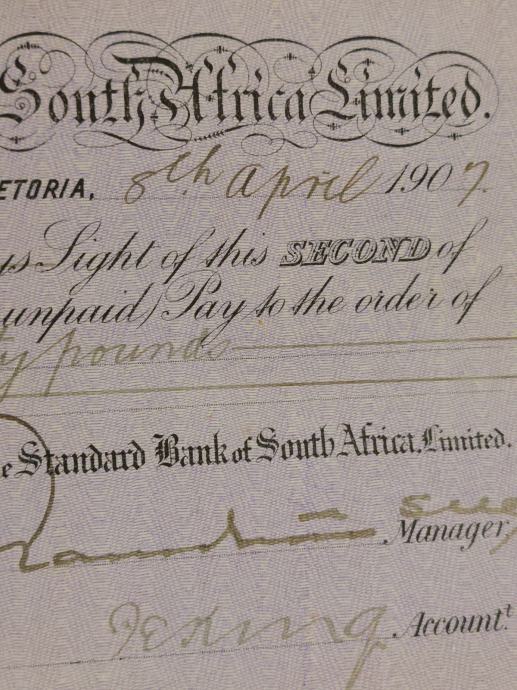 South Africa Limited.
ETORIA, 8th April 1907.
Sight of this SECOND of
unpaid) Pay to the order of
ty pounds
e Standard Bank of South Africa, Limited.
Manager,
Account.t